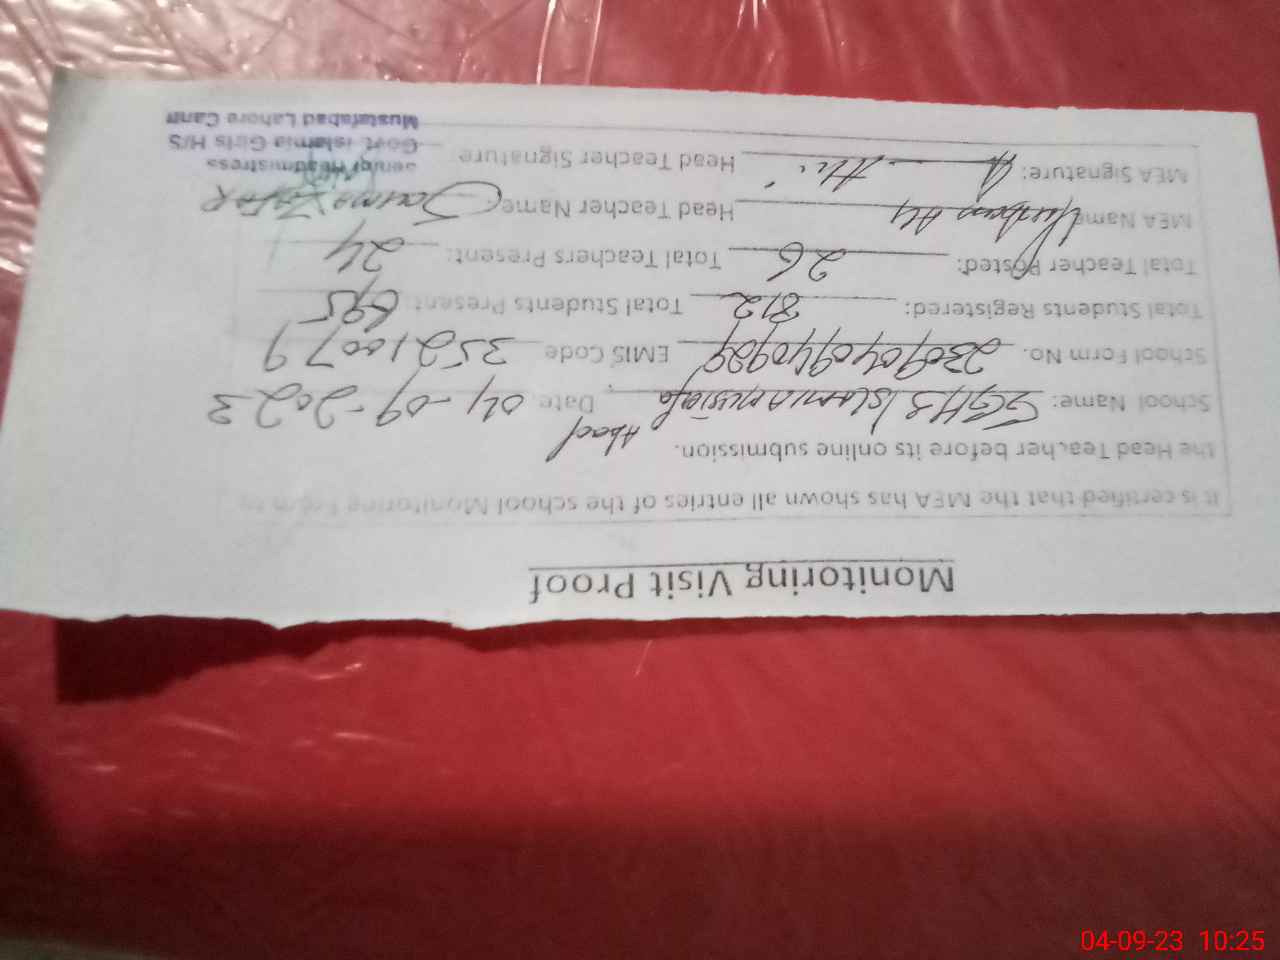 Monitoring Visit Proof
It is certified that the MEA has shown all entries of the school Monitoring Form to
the Head Teacher before its online submission.
School Name: GGHS Islamia Mustafa Abad Date 04-09-2023
School Form No. EMIS Code 35210079
Total Students Registered: 812 Total Students Present: 695
Total Teacher Posted: 26 Total Teachers Present: 24
MEA Name Ali Head Teacher Name: Saima Zafar
MEA Signature: Head Teacher Signature:
Senior Headmistress
Govt. Islamia Girls H/S
Mustafabad Lahore Cantt
04-09-23 10:25